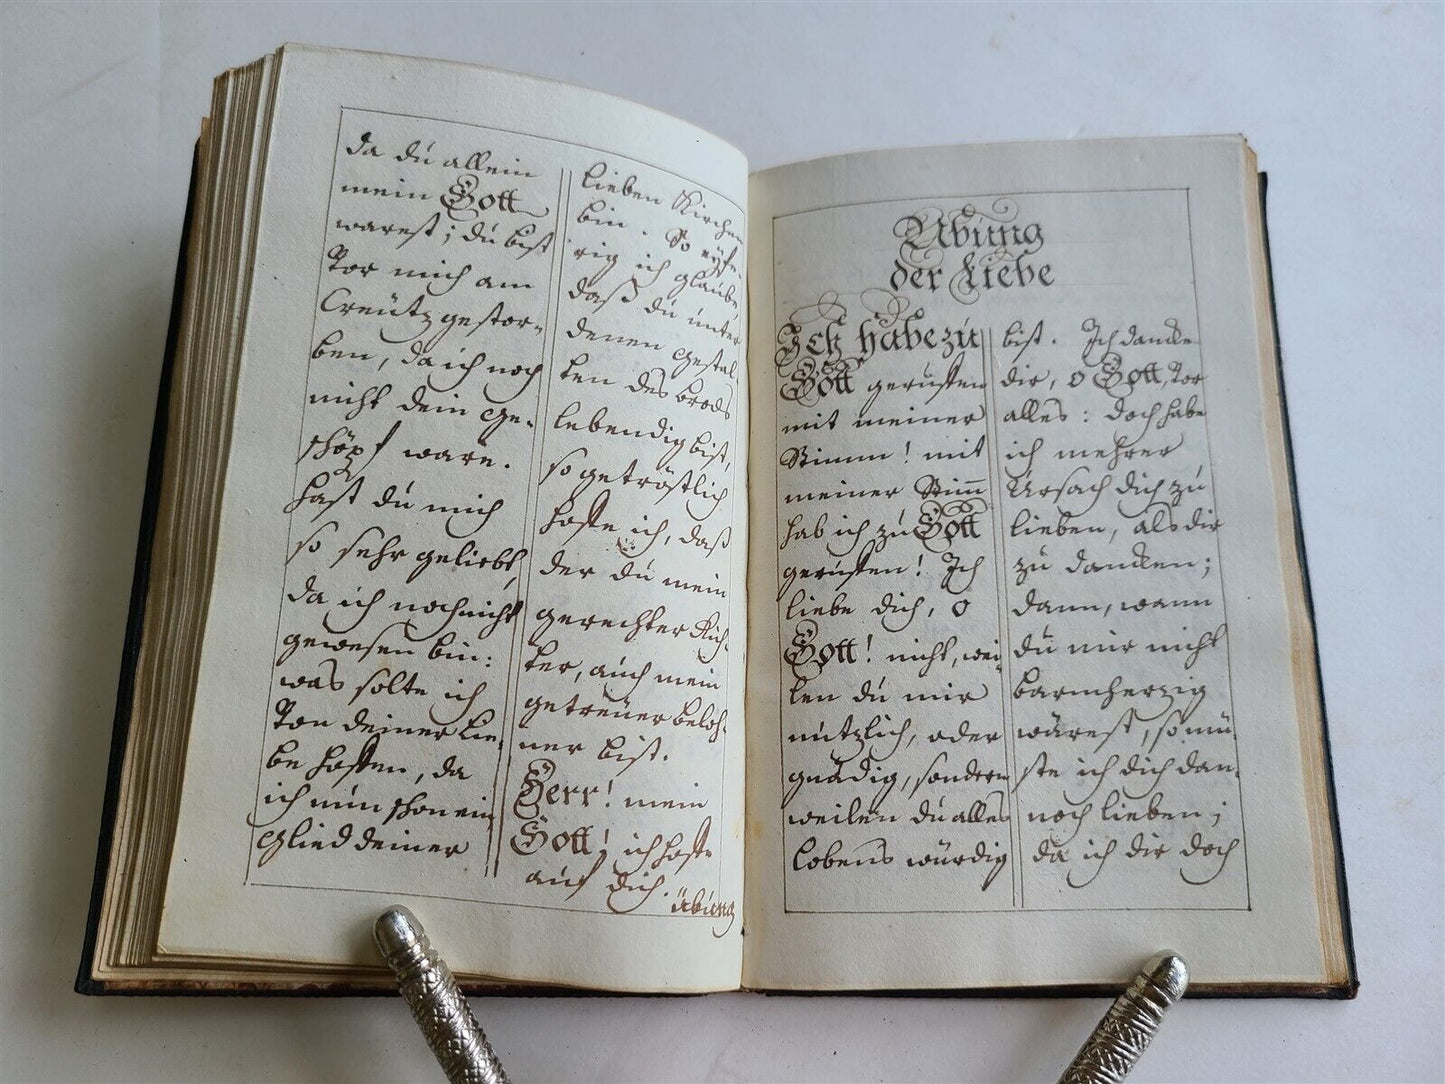 da du allein
mein Gott
warest; du bist
vor mich am
Creütz gestor-
ben, da ich noch
nicht dein Ge-
schöpf ware.
hast du mich
so sehr geliebt,
da ich noch nicht
gewesen bin:
was solte ich
von deiner Lie-
be hoffen, da
ich nun schon ein
Glied deiner
lieben Kirchen
bin. So eyfe-
rig ich glaube
daß du unter
denen Gestal
ten des brods
lebendig bist,
so getröstlich
hoffe ich, daß
der du mein
gerechter Rich-
ter, auch mein
getreüer beloh-
ner bist.
Herr! mein
Gott! ich hoffe
auf dich.
übung
Übung
der Liebe
Ich habe zu
Gott geruffen
mit meiner
Stimm! mit
meiner Stim̄
hab ich zu Gott
geruffen! Ich
liebe dich, o
Gott! nicht, wei-
len du mir
nützlich, oder
gnädig, sondern
weilen du alles
lobens würdig
bist. Ich dancke
dir, o Gott, vor
alles: doch habe
ich mehrer
Ursach dich zu
lieben, als dir
zu dancken;
dann, wann
du mir nicht
barmherzig
wärest, so mü-
ste ich dich dan-
noch lieben;
da ich dir doch